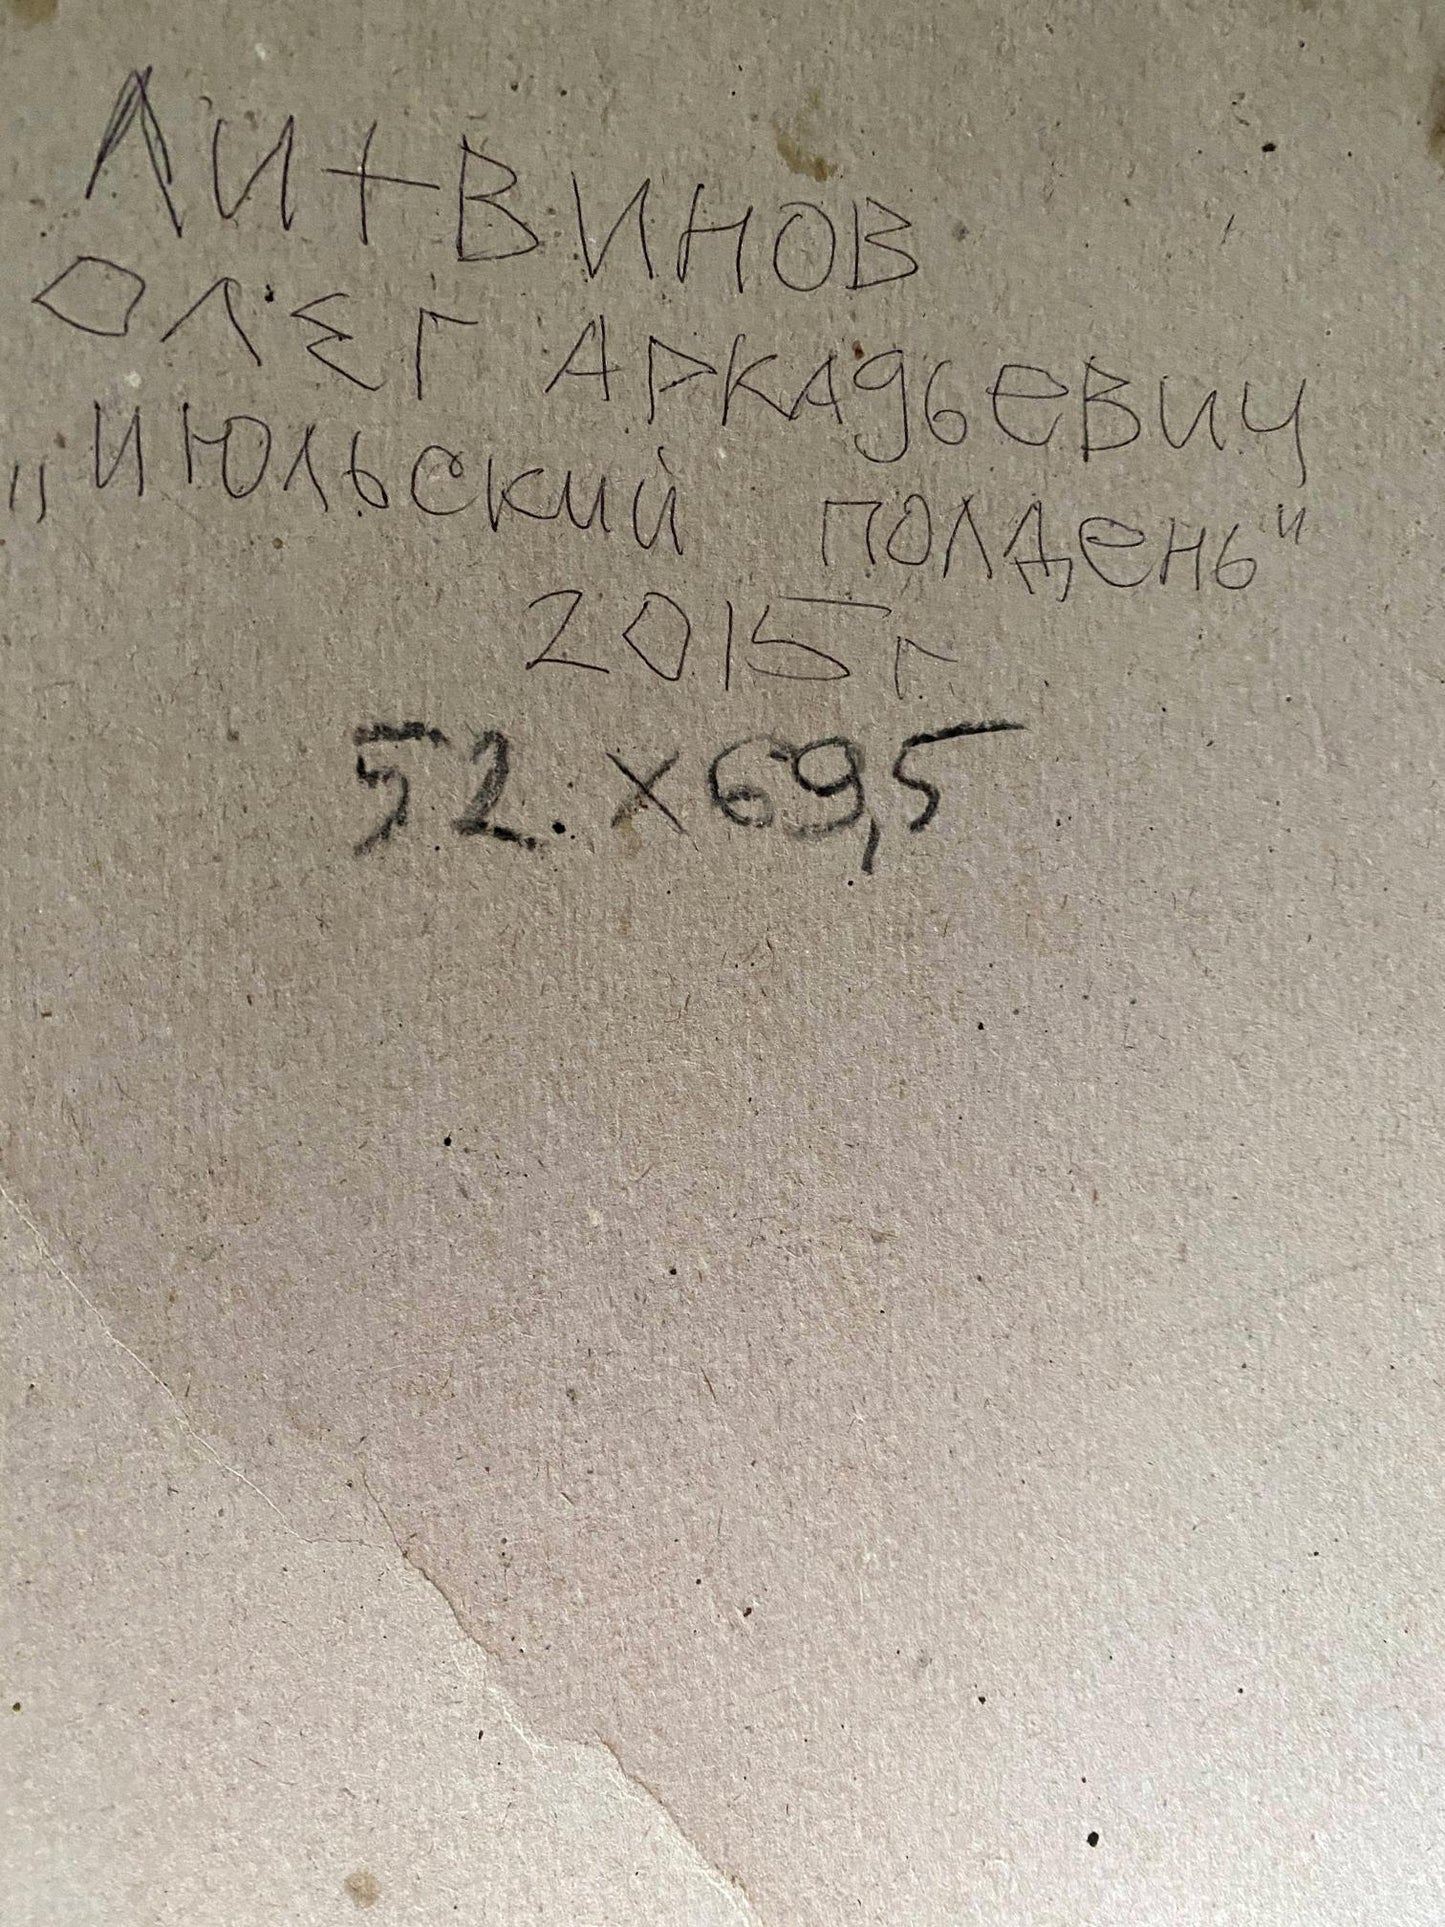 Литвинов
Олег Аркадьевич
„Июльский полдень"
2015 г
52. х 69,5